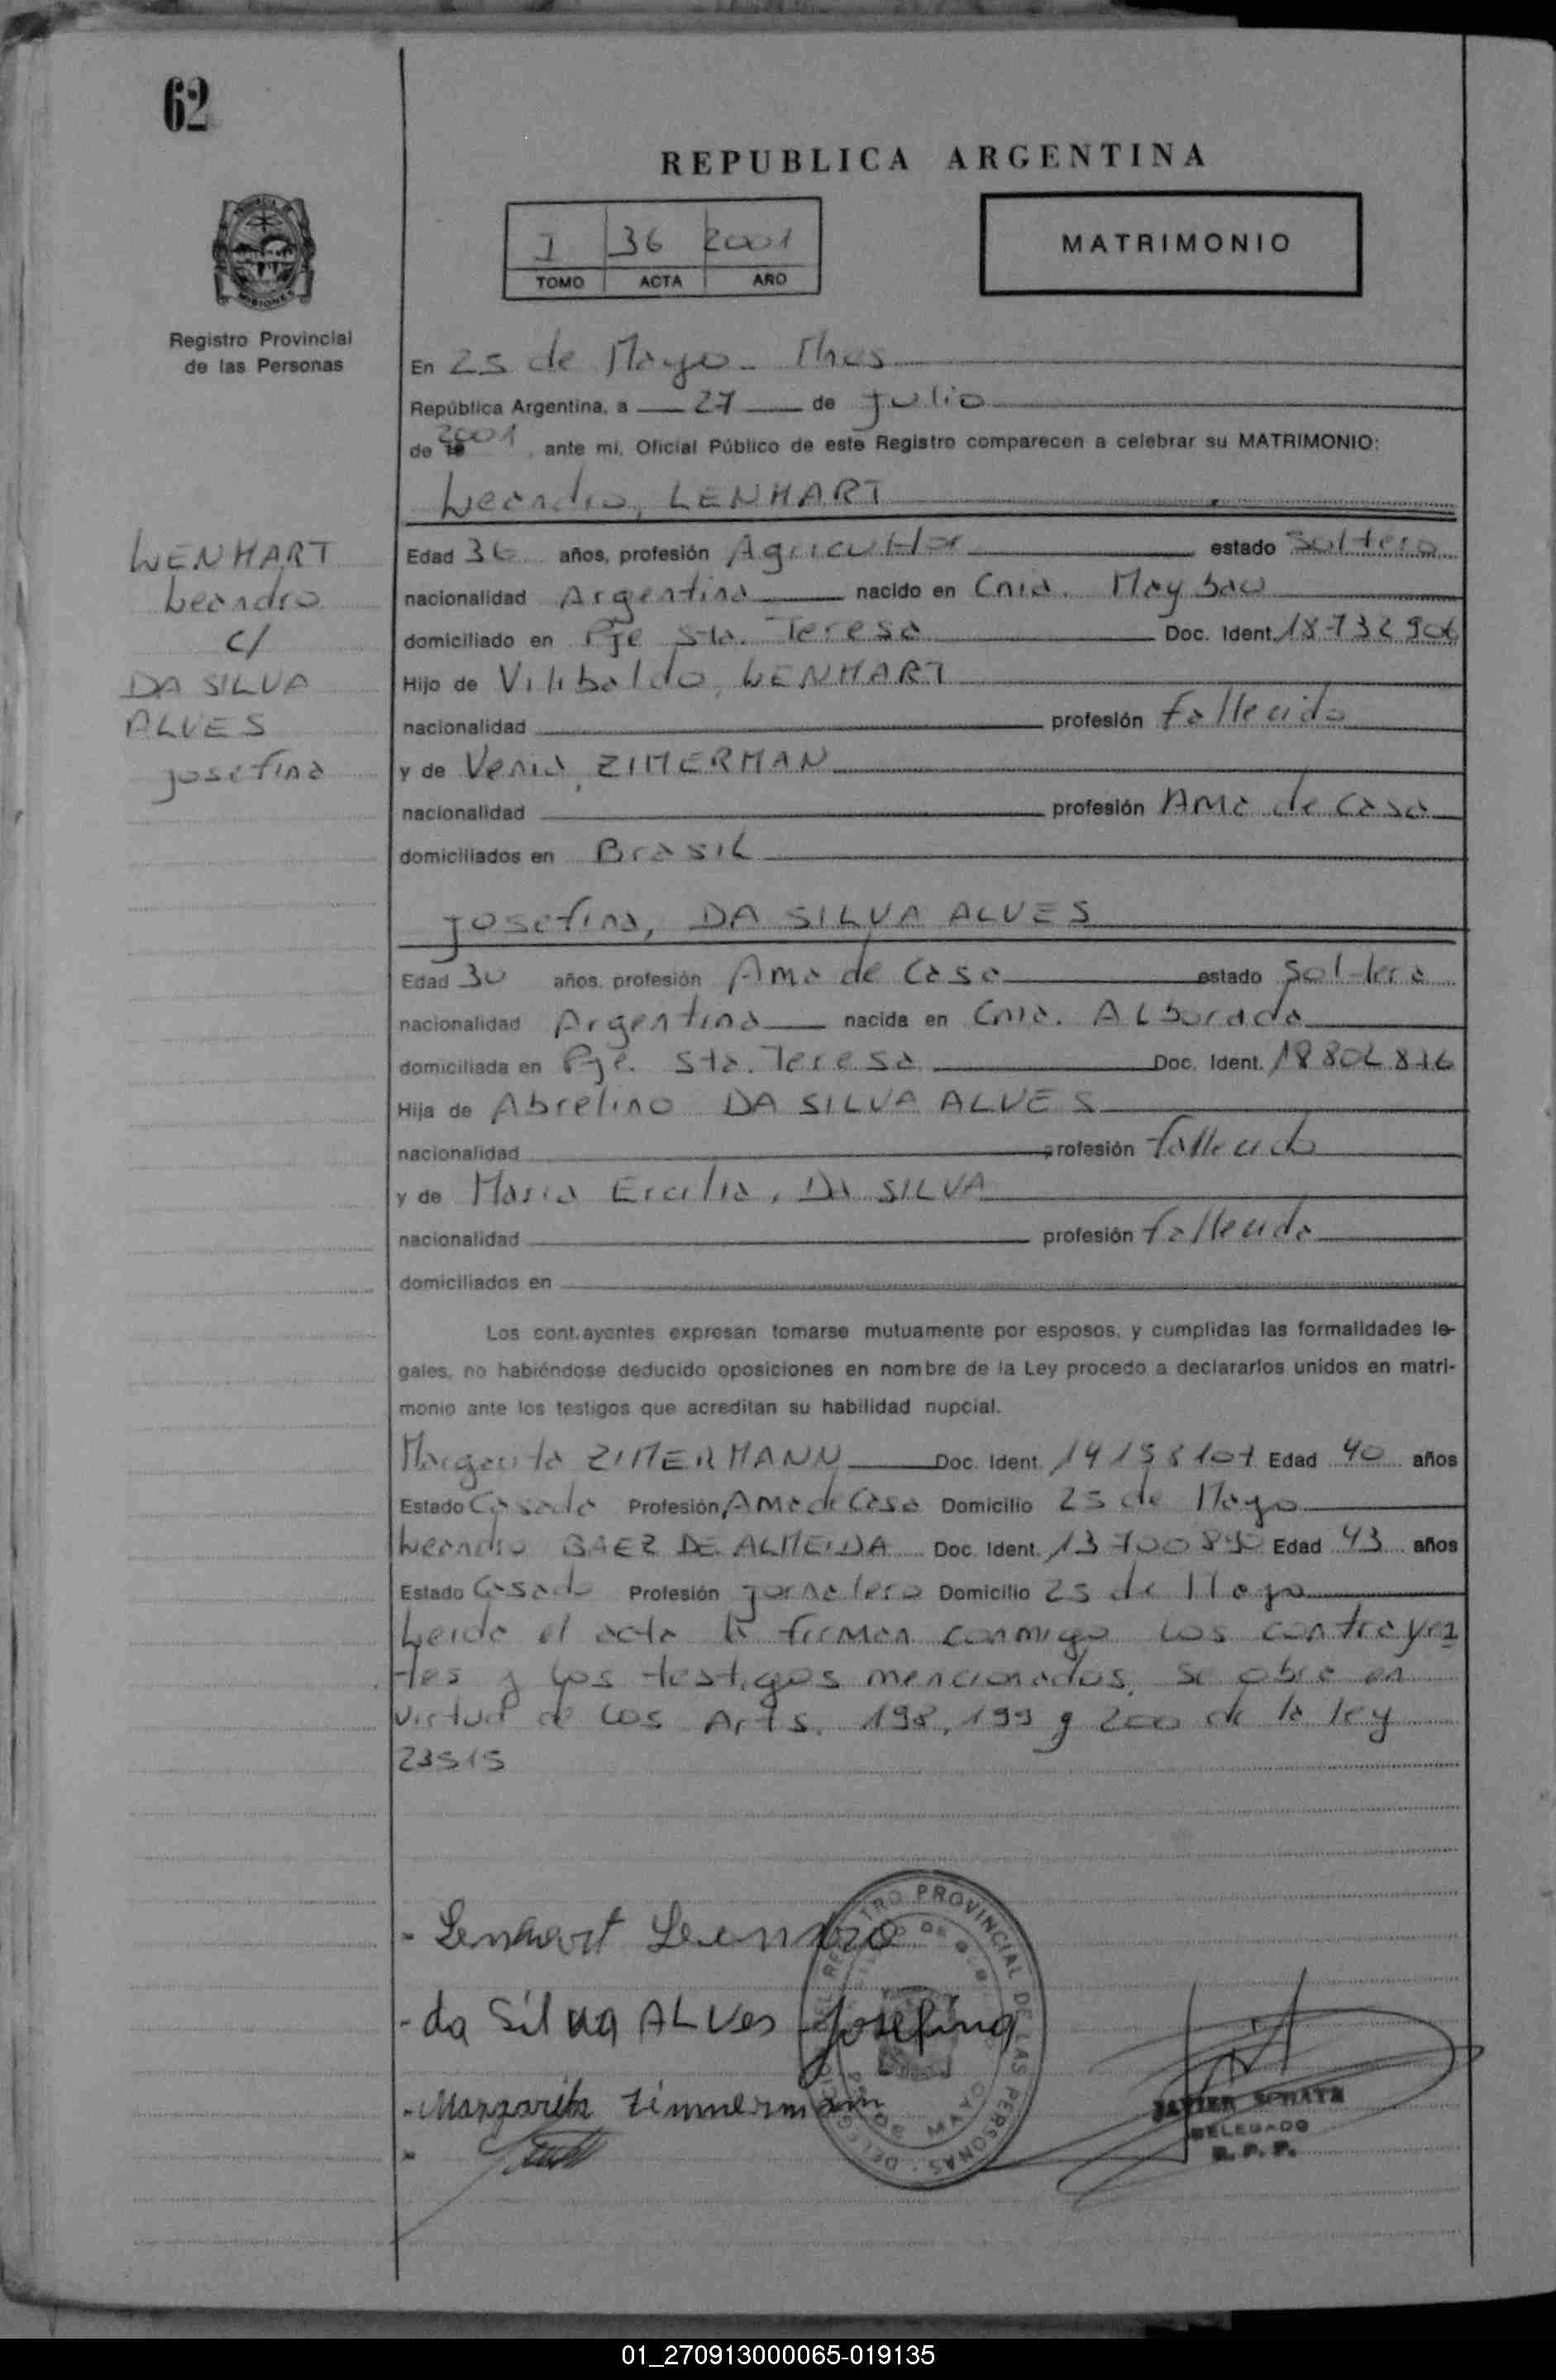 62
REPUBLICA ARGENTINA
I 36 2001
TOMO ACTA AÑO
MATRIMONIO
Registro Provincial
de las Personas
En 25 de Mayo - Mnes
República Argentina, a 27 de Julio
de 2001, ante mi, Oficial Público de este Registro comparecen a celebrar su MATRIMONIO:
Leandro, LENHART
LENHART
Leandro
c/
DA SILVA
ALVES
Josefina
Edad 36 años, profesión Agricultor estado Soltero
nacionalidad Argentina nacido en Cnia.
domiciliado en Pje Sta. Teresa Doc. Ident. 18732906
Hijo de Vilibaldo, LENHART
nacionalidad profesión fallecido
y de Venia, ZIMERMAN
nacionalidad profesión Ama de Casa
domiciliados en Brasil
Josefina, DA SILVA ALVES
Edad 30 años, profesión Ama de Casa estado Soltera
nacionalidad Argentina nacida en Cnia. ALborada
domiciliada en Pje. Sta. Teresa Doc. Ident.
Hija de Abrelino DA SILVA ALVES
nacionalidad profesión fallecido
y de Maria Ercilia, DA SILVA
nacionalidad profesión fallecida
domiciliados en
Los contrayentes expresan tomarse mutuamente por esposos, y cumplidas las formalidades le-
gales, no habiéndose deducido oposiciones en nombre de la Ley procedo a declararlos unidos en matri-
monio ante los testigos que acreditan su habilidad nupcial.
Margarita ZIMERMANN Doc. Ident. Edad 40 años
Estado Casada Profesión Ama de Casa Domicilio 25 de Mayo
Leandro BAEZ DE ALMEIDA Doc. Ident. Edad 43 años
Estado Casado Profesión Jornalero Domicilio 25 de Mayo
Leida el acta la firman conmigo los contrayen
tes y los testigos mencionados. Se obra en
virtud de los Arts. 198, 199 y 200 de la ley
23515
- Lenhart Leandro
- da Silva ALVes Josefina
- Margarita Zimmermann
REGISTRO PROVINCIAL DE LAS PERSONAS
JAVIER
DELEGADO
R. P. P.
01_270913000065-019135